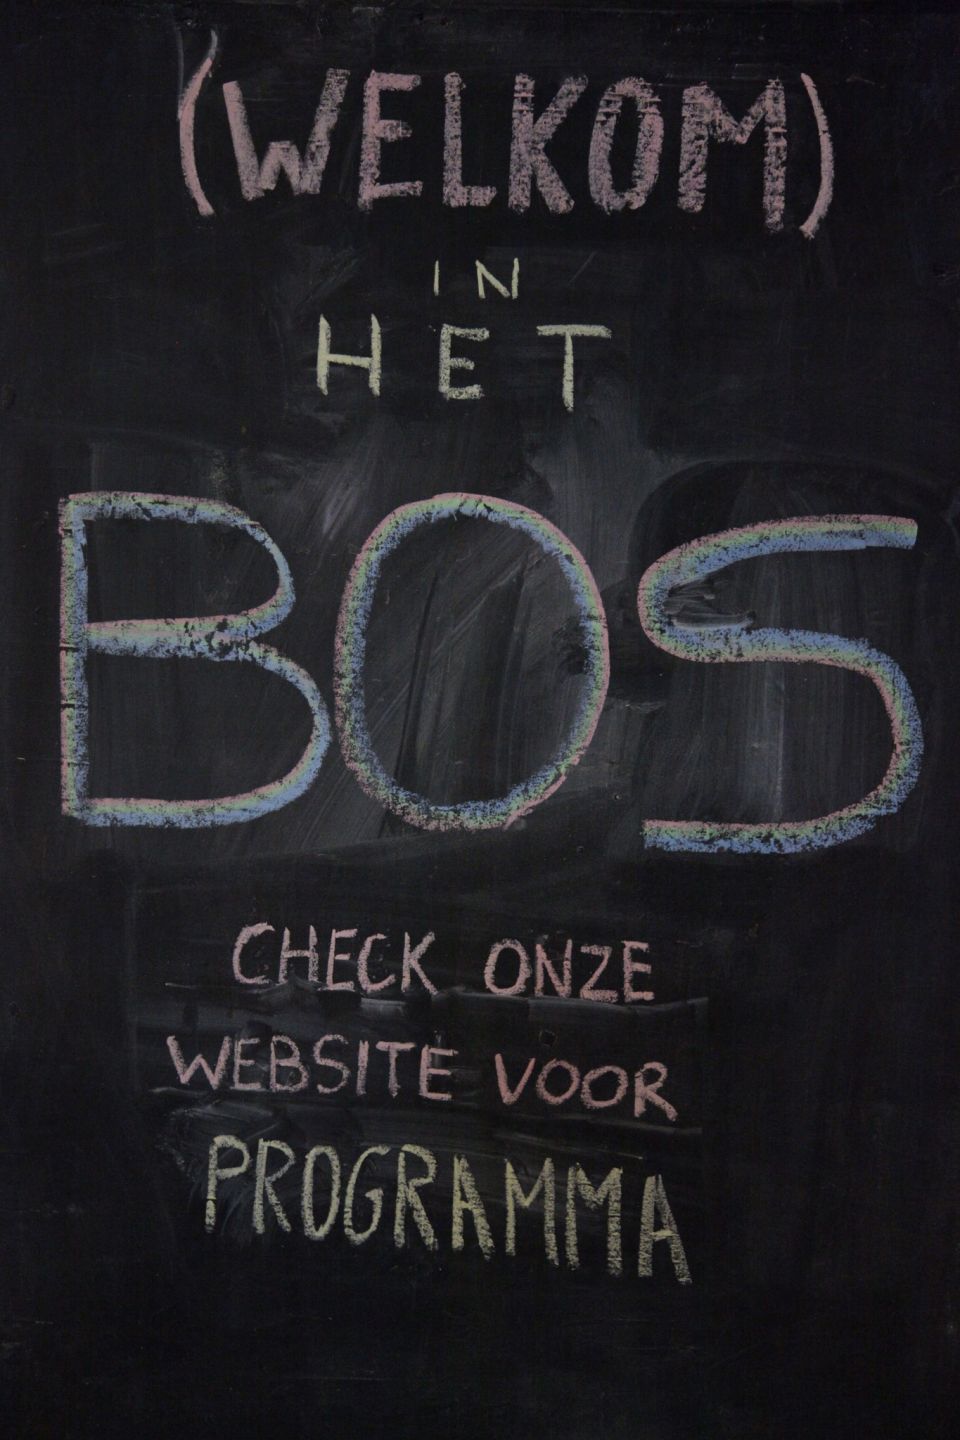 (WELKOM)
IN
HET
BOS
CHECK ONZE
WEBSITE VOOR
PROGRAMMA